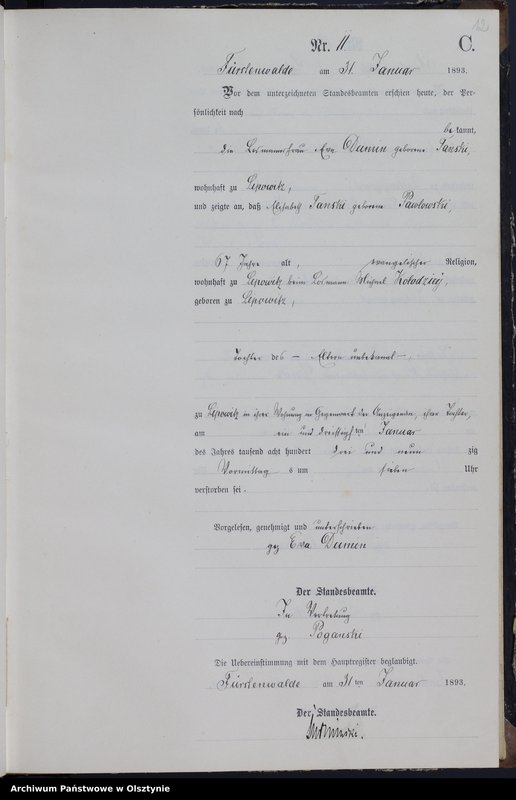 12
Nr. 11 C.
Fürstenwalde am 31. Januar 1893.
Vor dem unterzeichneten Standesbeamten erschien heute, der Per-
sönlichkeit nach
bekannt,
die Losmannsfrau Eva Dumin geborene Tanski,
wohnhaft zu Lipowitz,
und zeigte an, daß Elisabeth Tanski geborene Pawlowski,
67 Jahre alt, evangelischer Religion,
wohnhaft zu Lipowitz beim Losmann Michael Kolodziej,
geboren zu Lipowitz,
Tochter des – Eltern unbekannt –,
zu Lipowitz in ihrer Wohnung in Gegenwart der Anzeigenden, ihrer Tochter,
am ein und dreißigsten Januar
des Jahres tausend acht hundert drei und neun zig
Vormittags um sieben Uhr
verstorben sei.
Vorgelesen, genehmigt und unterschrieben
gez Eva Dumin
Der Standesbeamte.
In Vertretung
gz. Poganski
Die Uebereinstimmung mit dem Hauptregister beglaubigt.
Fürstenwalde am 31ten Januar 1893.
Der Standesbeamte.
Archiwum Państwowe w Olsztynie